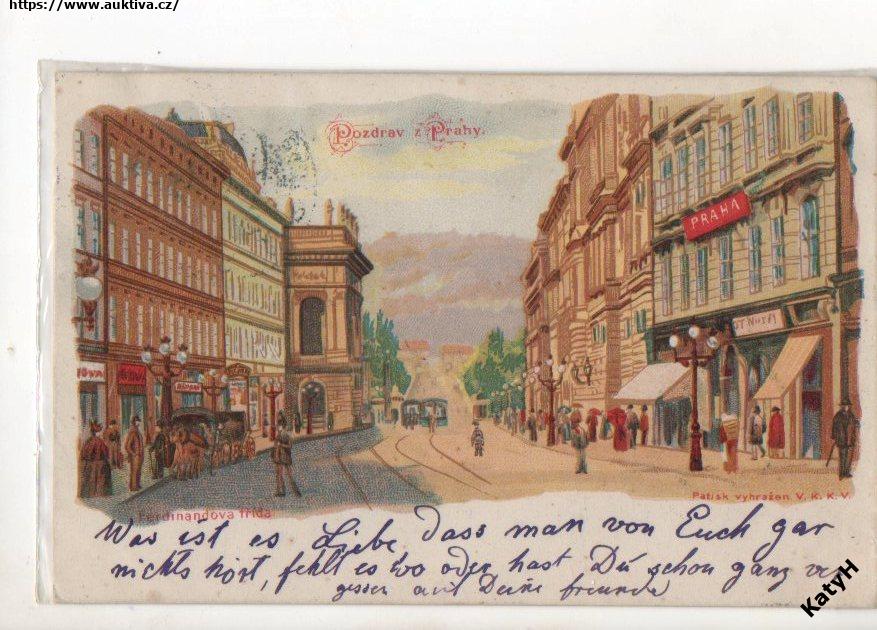 https://www.auktiva.cz/
Pozdrav z Prahy.
PRAHA
Ferdinandova třída
Patisk vyhražen V. K. K. V.
Was ist es Liebe dass man von Euch gar
nichts hört, fehlt es wo oder hast Dů schon ganz ver
gessen auf Deine freunde
KatyH